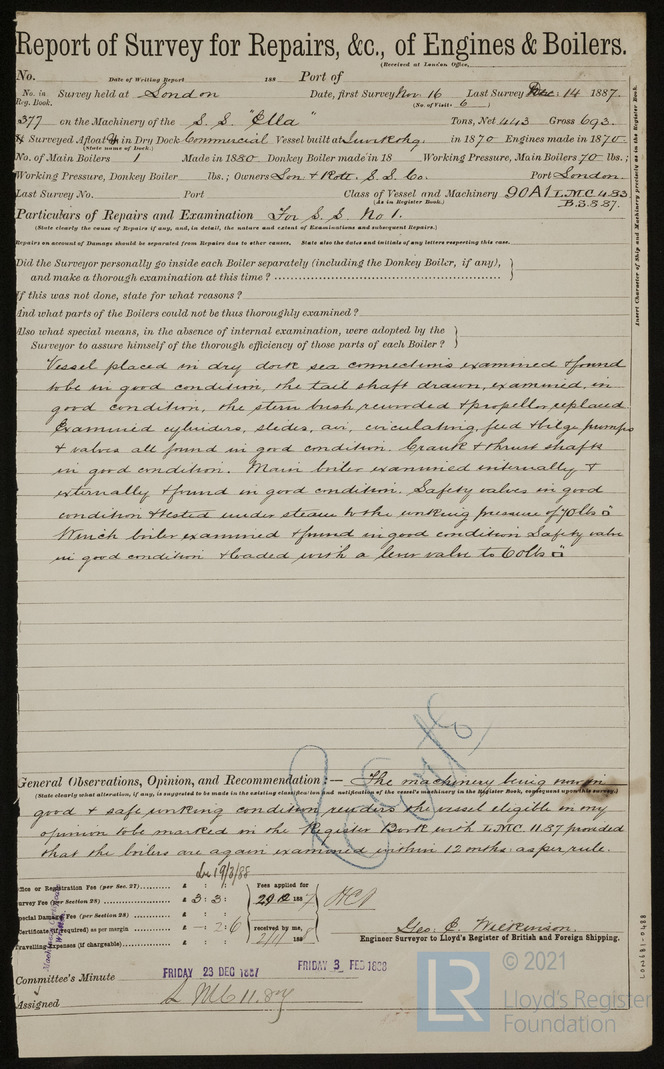 Report of Survey for Repairs, &c., of Engines & Boilers.
(Received at London Office,
No. Date of Writing Report 188 Port of
No. in Reg. Book. Survey held at London Date, first Survey Nov. 16 Last Survey Dec: 14 1887.
(No. of Visits 6)
377 on the Machinery of the S.S. "Ella" Tons, Net 443 Gross 693.
Surveyed Afloat or in Dry Dock Commercial Vessel built at in 1870 Engines made in 1870
(State name of Dock.)
No. of Main Boilers 1 Made in 1880 Donkey Boiler made in 18 Working Pressure, Main Boilers 70 lbs.;
Working Pressure, Donkey Boiler lbs.; Owners Lon & Rott. S.S. Co. Port London.
Last Survey No. Port Class of Vessel and Machinery 90A1 L.M.C. 4.83
(As in Register Book.) B.S. 8.87.
Particulars of Repairs and Examination For S.S. No 1.
(State clearly the cause of Repairs if any, and, in detail, the nature and extent of Examinations and subsequent Repairs.)
Repairs on account of Damage should be separated from Repairs due to other causes. State also the dates and initials of any letters respecting this case.
Did the Surveyor personally go inside each Boiler separately (including the Donkey Boiler, if any),
and make a thorough examination at this time?
If this was not done, state for what reasons?
And what parts of the Boilers could not be thus thoroughly examined?
Also what special means, in the absence of internal examination, were adopted by the
Surveyor to assure himself of the thorough efficiency of those parts of each Boiler?
Vessel placed in dry dock sea connections examined & found
to be in good condition, the tail shaft drawn, examined, in
good condition, the stern bush rewooded & propellor replaced
Examined cylinders, slides, air, circulating, feed & bilge pumps
& valves all found in good condition. Crank & thrust shafts
in good condition. Main boiler examined internally &
externally & found in good condition. Safety valves in good
condition & tested under steam to the working pressure of 70 lbs □"
Winch boiler examined & found in good condition Safety valve
in good condition & loaded with a lever valve to 60 lbs □"
General Observations, Opinion, and Recommendation:— The machinery being now in
(State clearly what alteration, if any, is suggested to be made in the existing classification and notification of the vessel's machinery in the Register Book, consequent upon this survey.)
good & safe working condition renders the vessel eligible in my
opinion to be marked in the Register Book with L.M.C. 11.87 provided
that the boilers are again examined within 12 months as per rule.
Office or Registration Fee (per Sec. 27) £ : : Fees applied for
Survey Fee (per Section 28) £ 3 : 3 : 29.12 1887
Special Damage Fee (per Section 28) £ : :
Certificate (if required) as per margin £ - 2 : 6 received by me,
Travelling Expenses (if chargeable) £ : : 188
Geo. C. Wilkinson.
Engineer Surveyor to Lloyd's Register of British and Foreign Shipping.
Committee's Minute FRIDAY 23 DEC 1887 FRIDAY 3 FEB 1888
Assigned L M C 11.87
Insert Character of Ship and Machinery precisely as in the Register Book.
© 2021
LR
Lloyd's Register
Foundation